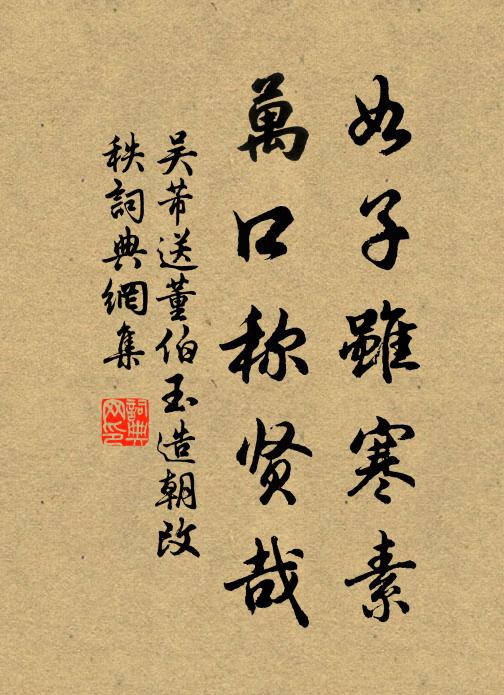 如子雖寒素
萬口称贤哉
吴芾送董伯玉造朝改
秩詞典網集
詞典
网印